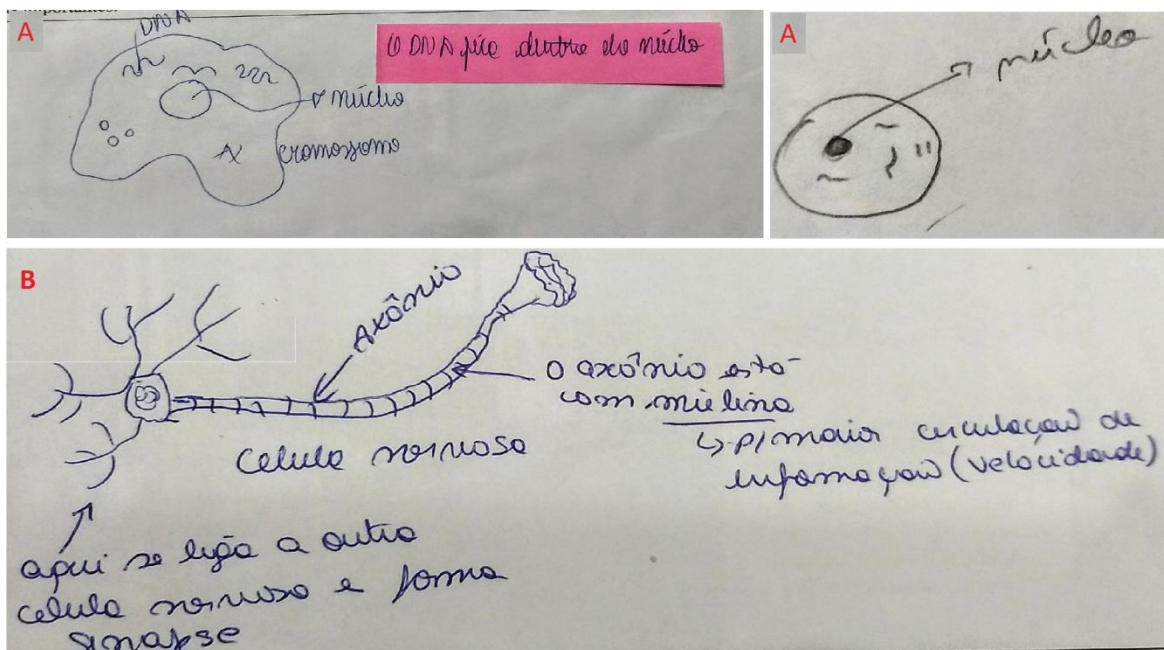 importantes.
A
DNA
O DNA fica dentro do núcleo
núcleo
cromossomo
A
núcleo
B
Axônio
O axônio está
com mielina
↳ p/ maior circulação de
informação (velocidade)
Celula nervosa
aqui se liga a outra
celula nervosa e forma
sinapse